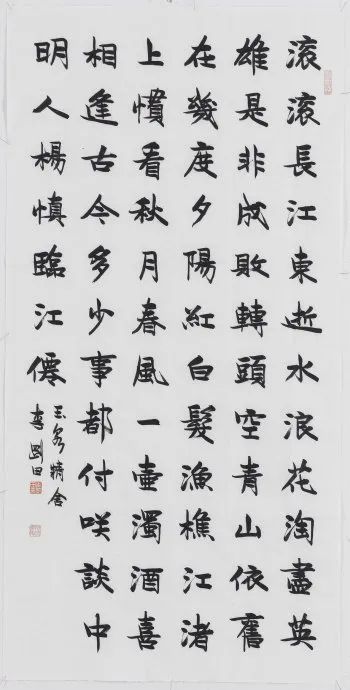 滾滾長江東逝水浪花淘盡英
雄是非成敗轉頭空青山依舊
在幾度夕陽紅白髮漁樵江渚
上慣看秋月春風一壺濁酒喜
相逢古今多少事都付咲談中
明人楊慎臨江僊
精舍